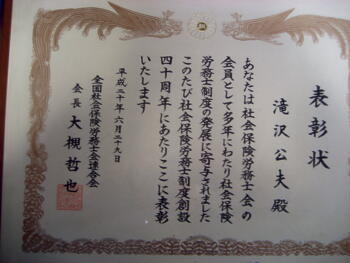 表彰状
滝沢公夫殿
あなたは社会保険労務士会の
会員として多年にわたり社会保険
労務士制度の発展に寄与されました
このたび社会保険労務士制度創設
四十周年にあたりここに表彰
いたします
平成二十年六月二十九日
全国社会保険労務士会連合会
会長 大槻哲也